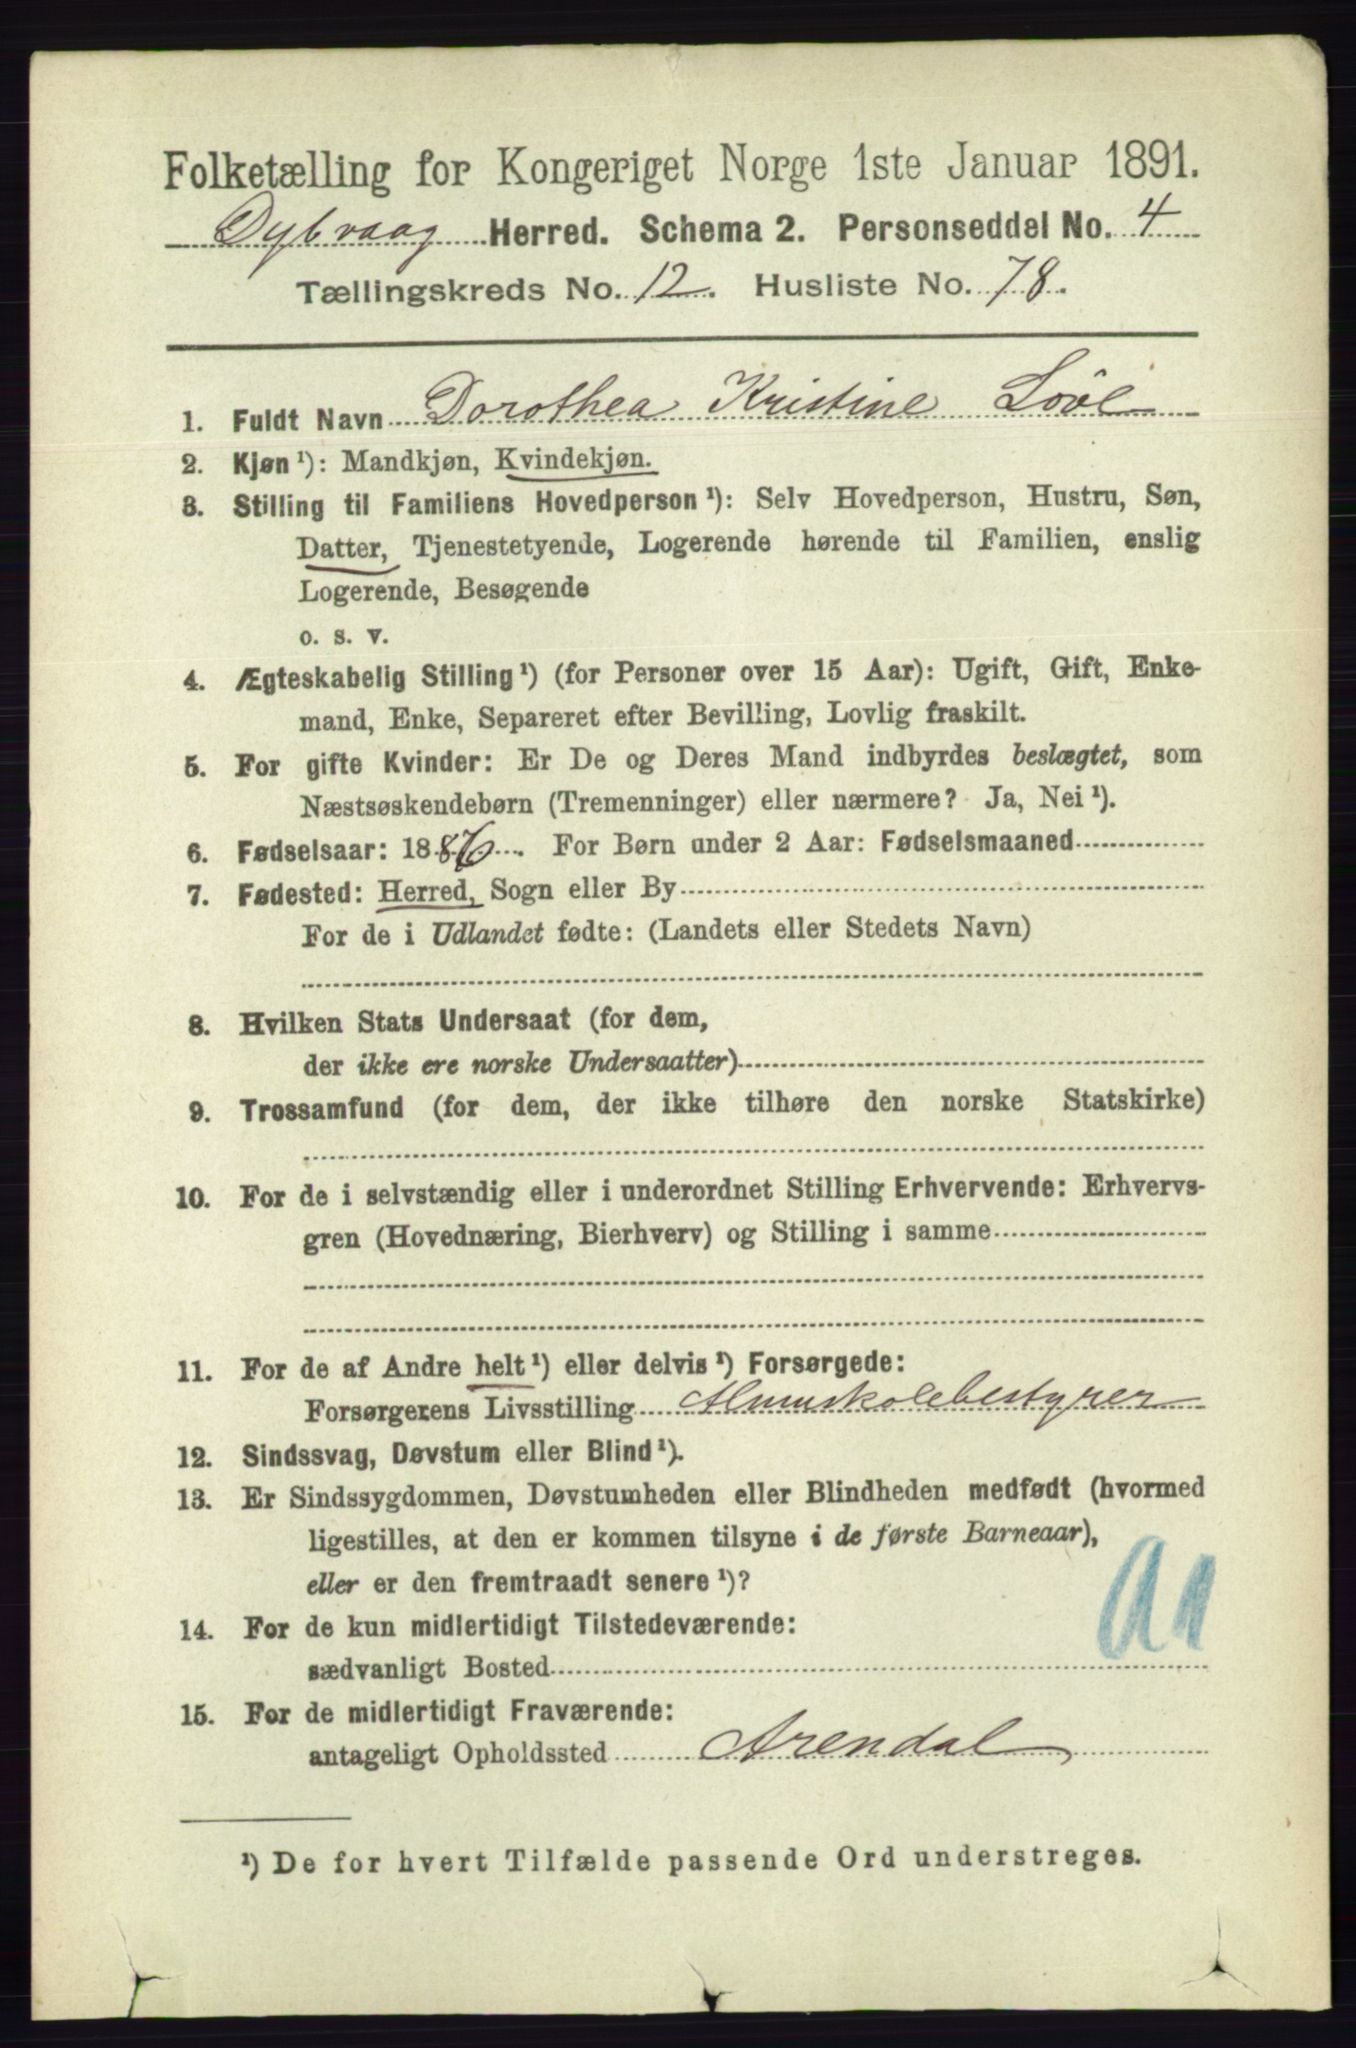 Folketælling for Kongeriget Norge 1ste Januar 1891.
Dybvaag Herred. Schema 2. Personseddel No. 4
Tællingskreds No. 12. Husliste No. 78.
1. Fuldt Navn Dorothea Kristine Löve
2. Kjøn¹): Mandkjøn, Kvindekjøn.
3. Stilling til Familiens Hovedperson¹): Selv Hovedperson, Hustru, Søn,
Datter, Tjenestetyende, Logerende hørende til Familien, enslig
Logerende, Besøgende
o. s. v.
4. Ægteskabelig Stilling¹) (for Personer over 15 Aar): Ugift, Gift, Enke-
mand, Enke, Separeret efter Bevilling, Lovlig fraskilt.
5. For gifte Kvinder: Er De og Deres Mand indbyrdes beslægtet, som
Næstsøskendebørn (Tremenninger) eller nærmere? Ja, Nei¹).
6. Fødselsaar: 1886. For Børn under 2 Aar: Fødselsmaaned
7. Fødested: Herred, Sogn eller By
For de i Udlandet fødte: (Landets eller Stedets Navn)
8. Hvilken Stats Undersaat (for dem,
der ikke ere norske Undersaatter)
9. Trossamfund (for dem, der ikke tilhøre den norske Statskirke)
10. For de i selvstændig eller i underordnet Stilling Erhvervende: Erhvervs-
gren (Hovednæring, Bierhverv) og Stilling i samme
11. For de af Andre helt¹) eller delvis¹) Forsørgede:
Forsørgerens Livsstilling Almuskolebestyrer
12. Sindssvag, Døvstum eller Blind¹).
13. Er Sindssygdommen, Døvstumheden eller Blindheden medfødt (hvormed
ligestilles, at den er kommen tilsyne i de første Barneaar),
eller er den fremtraadt senere¹)?
14. For de kun midlertidigt Tilstedeværende:
sædvanligt Bosted
15. For de midlertidigt Fraværende:
antageligt Opholdssted Arendal
¹) De for hvert Tilfælde passende Ord understreges.